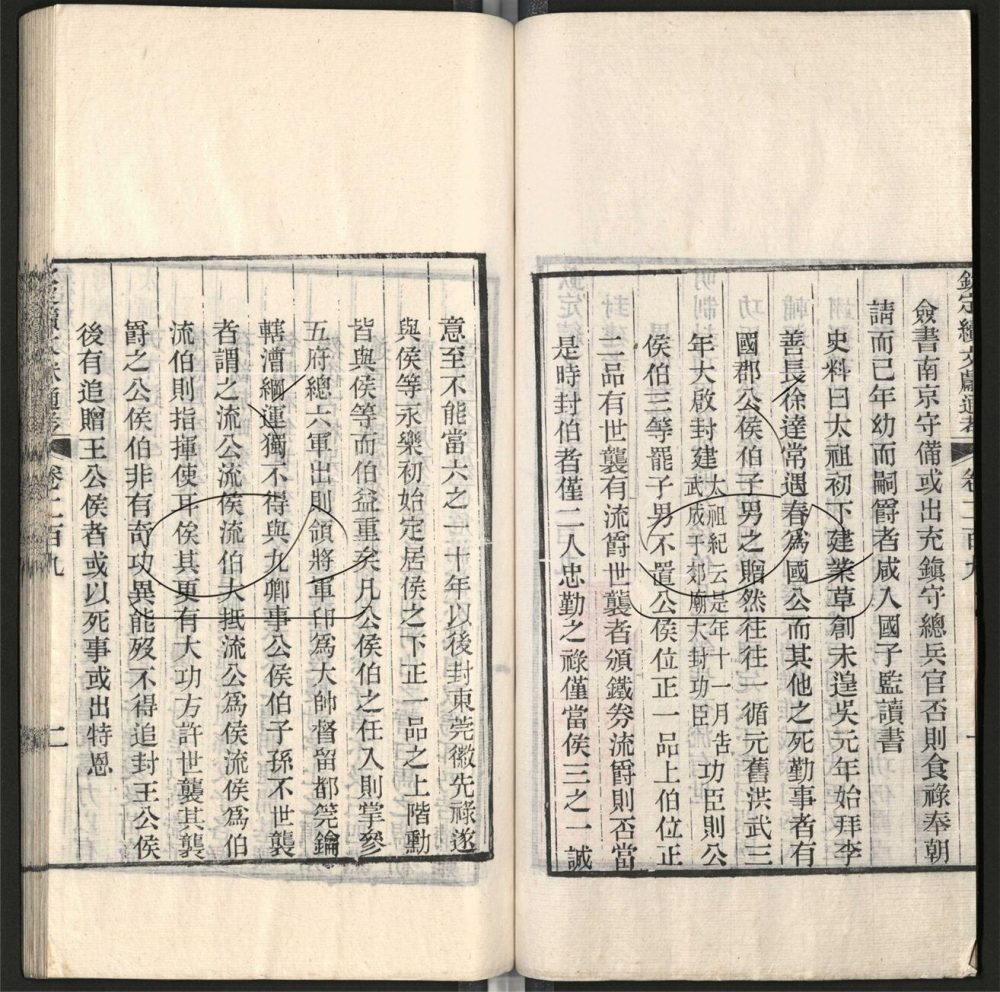 欽定續文獻通考 卷二百九 一
僉書南京守備或出充鎭守總兵官否則食祿奉朝
請而已年幼而嗣爵者咸入國子監讀書
史料曰太祖初下建業草創未遑吳元年始拜李
善長徐達常遇春爲國公而其他之死勤事者有
國郡公侯伯子男之贈然往往一循元舊洪武三
年大啟封建太祖紀云是年十一月告武成于郊廟大封功臣功臣則公
侯伯三等罷子男不置公侯位正一品上伯位正
二品有世襲有流爵世襲者頒鐵券流爵則否當
是時封伯者僅二人忠勤之祿僅當侯三之一誠
意至不能當六之一十年以後封東莞徽先祿遂
與侯等永樂初始定居侯之下正一品之上階勳
皆與侯等而伯益重矣凡公侯伯之任入則掌參
五府總六軍出則領將軍印爲大帥督留都筦鑰
轄漕綱運獨不得與九卿事公侯伯子孫不世襲
者謂之流公流侯流伯大抵流公爲侯流侯爲伯
流伯則指揮使耳俟其更有大功方許世襲其襲
爵之公侯伯非有奇功異能歿不得追封王公侯
後有追贈王公侯者或以死事或出特恩
卷二百九 二